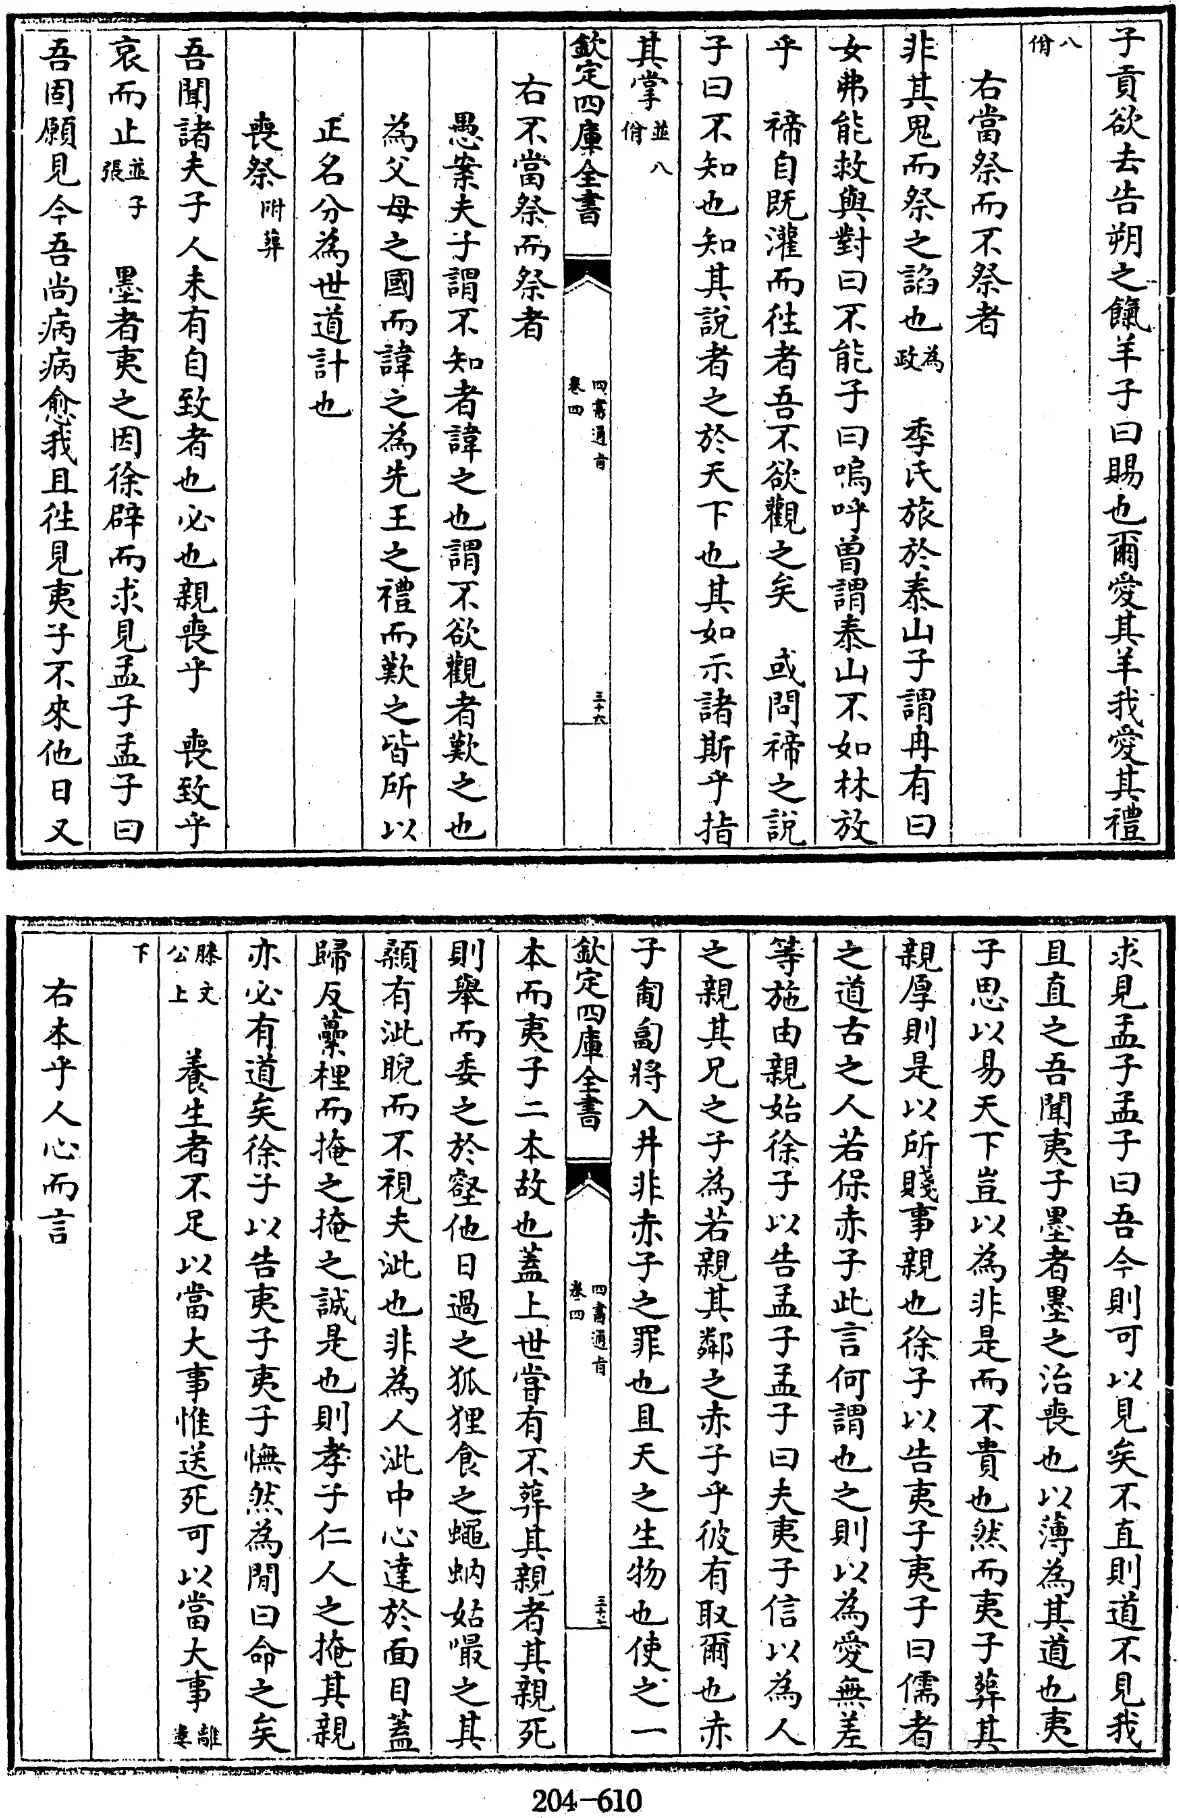 子貢欲去告朔之餼羊子曰賜也爾愛其羊我愛其禮
八佾
右當祭而不祭者
非其鬼而祭之諂也為政 季氏旅於泰山子謂冉有曰
女弗能救與對曰不能子曰嗚呼曽謂泰山不如林放
乎 禘自既灌而徃者吾不欲觀之矣 或問禘之說
子曰不知也知其說者之於天下也其如示諸斯乎指
其掌並八佾
欽定四庫全書
四書通旨
卷四
三十六
右不當祭而祭者
愚案夫子謂不知者諱之也謂不欲觀者歎之也
為父母之國而諱之為先王之禮而歎之皆所以
正名分為世道計也
喪祭附葬
吾聞諸夫子人未有自致者也必也親喪乎 喪致乎
哀而止並子張 墨者夷之因徐辟而求見孟子孟子曰
吾固願見今吾尚病病愈我且徃見夷子不來他日又
求見孟子孟子曰吾今則可以見矣不直則道不見我
且直之吾聞夷子墨者墨之治喪也以薄為其道也夷
子思以易天下豈以為非是而不貴也然而夷子葬其
親厚則是以所賤事親也徐子以告夷子夷子曰儒者
之道古之人若保赤子此言何謂也之則以為愛無差
等施由親始徐子以告孟子孟子曰夫夷子信以為人
之親其兄之子為若親其鄰之赤子乎彼有取爾也赤
子匍匐將入井非赤子之罪也且天之生物也使之一
欽定四庫全書
四書通旨
卷四
三十七
本而夷子二本故也蓋上世嘗有不葬其親者其親死
則舉而委之於壑他日過之狐狸食之蠅蚋姑嘬之其
顙有泚睨而不視夫泚也非為人泚中心達於面目蓋
歸反虆梩而掩之掩之誠是也則孝子仁人之掩其親
亦必有道矣徐子以告夷子夷子憮然為閒曰命之矣
滕文公上 養生者不足以當大事惟送死可以當大事離婁
下
右本乎人心而言
204-610